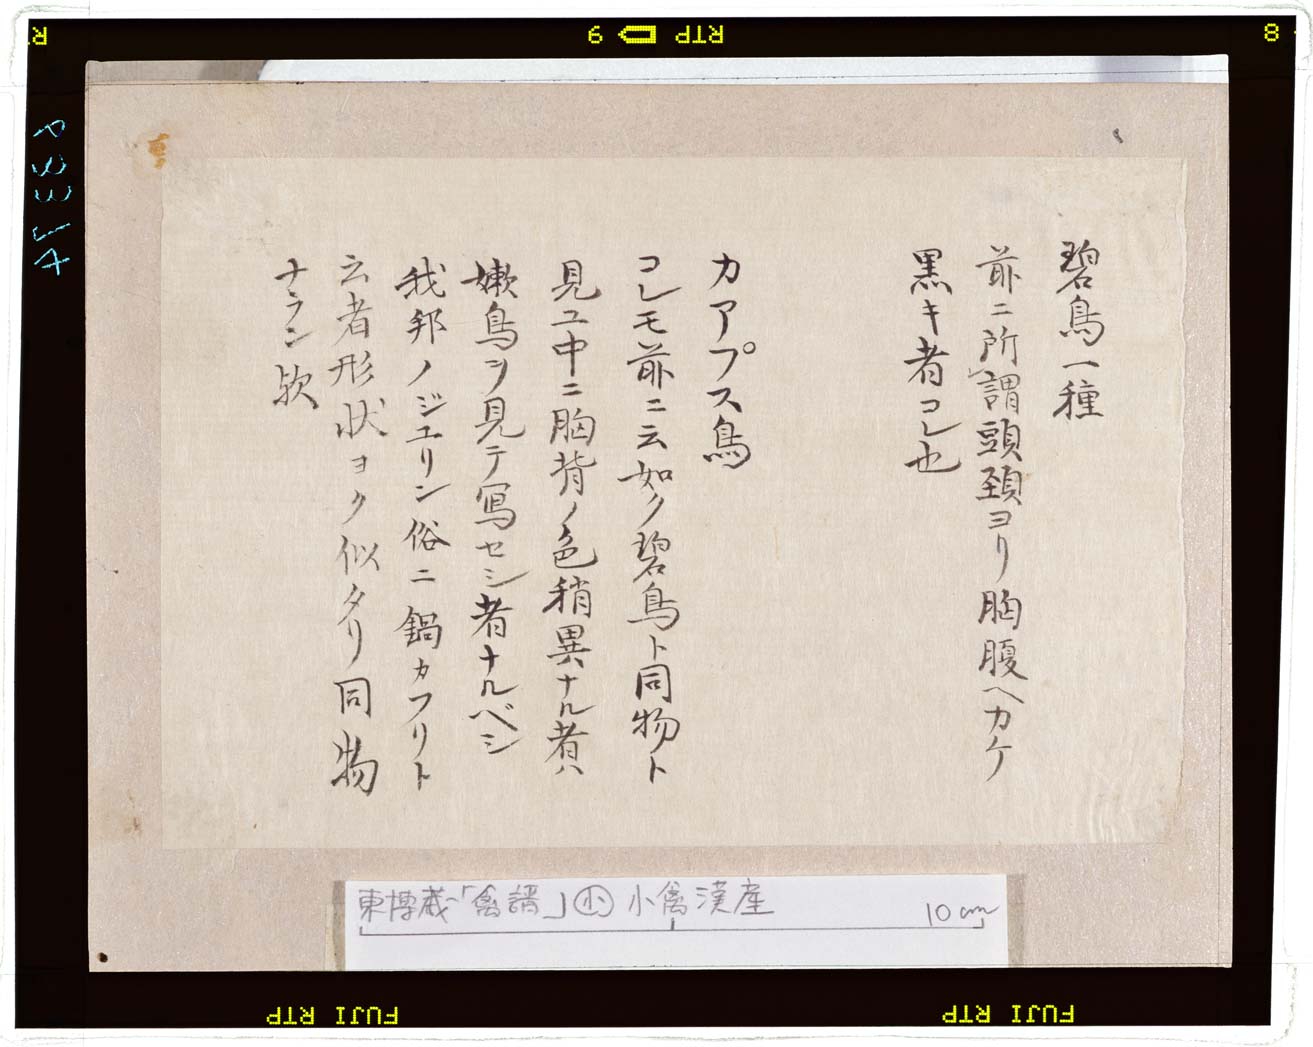 碧鳥一種
前ニ所謂頭頚ヨリ胸腹ヘカケ
黒キ者コレ也
カアプス鳥
コレモ前ニ云如ク碧鳥ト同物ト
見ユ中ニ胸背ノ色稍異ナル者ハ
嫩鳥ヲ見テ写セシ者ナルベシ
我邦ノジユリン俗ニ鍋カフリト
云者形状ヨク似タリ同物
ナラン欤
東博蔵「禽譜」 小禽漢産
10cm
RTP
6
RTP
8
FUJI RTP
FUJI RTP